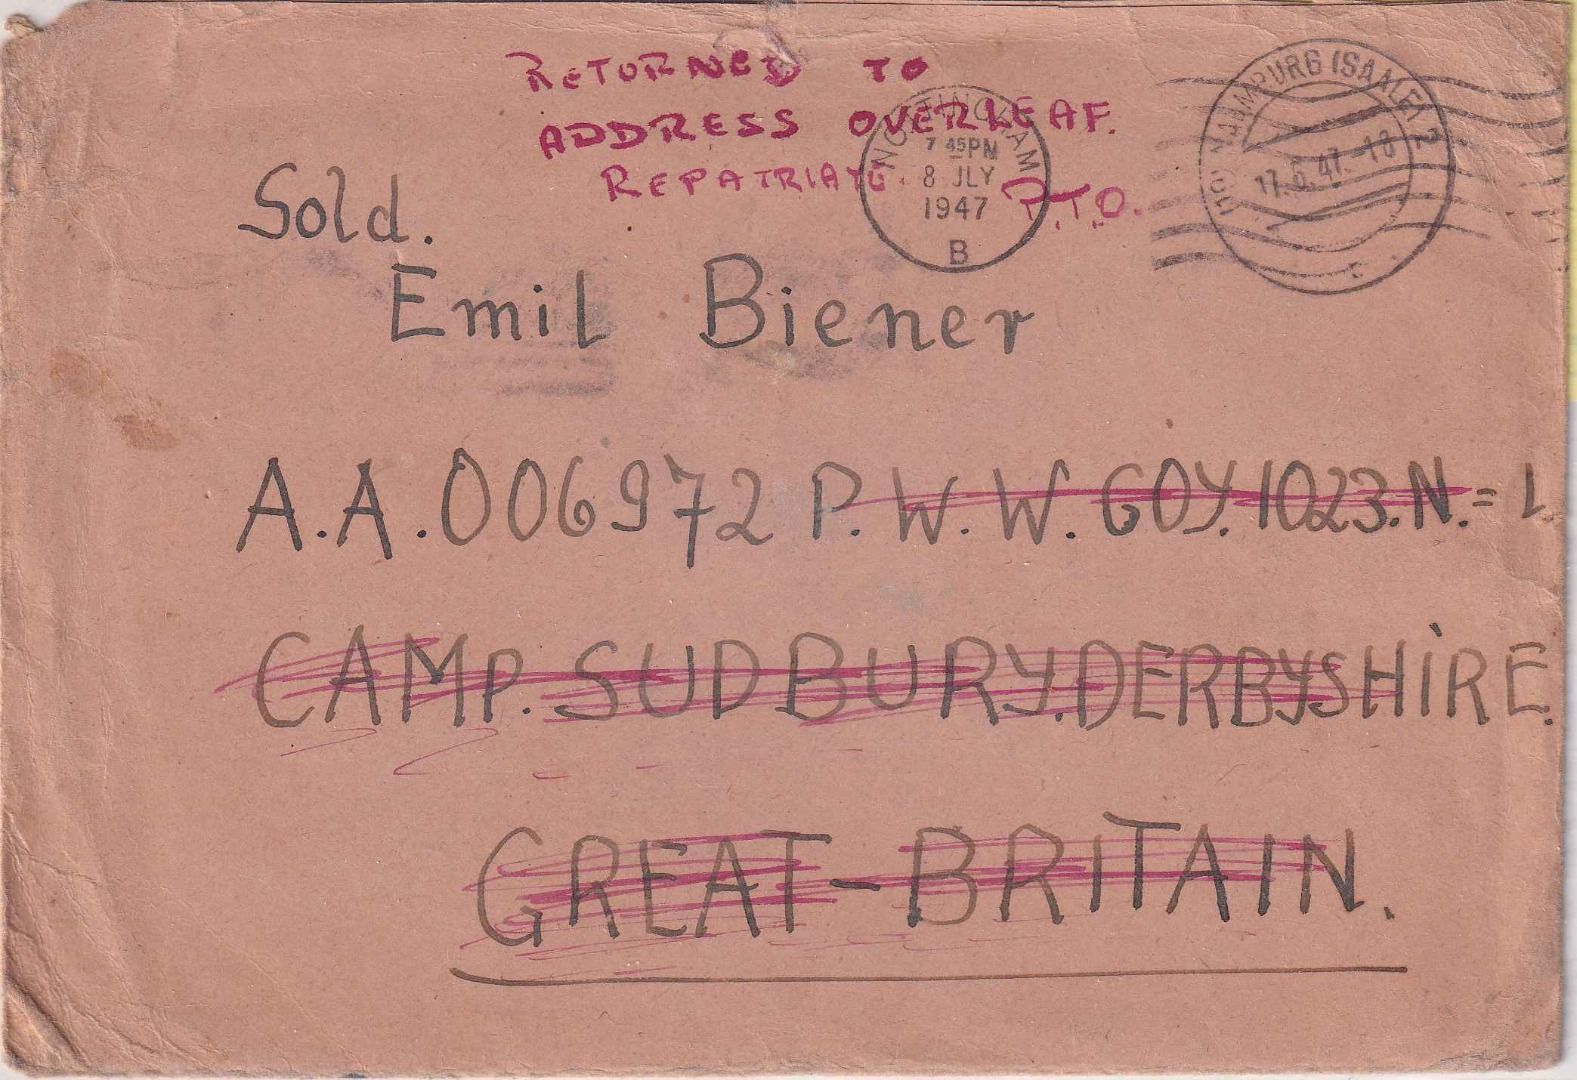 RETURNED TO
ADDRESS OVERLEAF.
REPATRIATE.
P.T.O.
NOTTINGHAM
7 45PM
8 JLY
1947
B
NAUMBURG (SAALE) 2
17.6.47.-18
c
Sold.
Emil Biener
A.A.006972 P.W.W.GOY.1023.N.=L
CAMP.SUDBURY.DERBYSHIRE.
GREAT-BRITAIN.